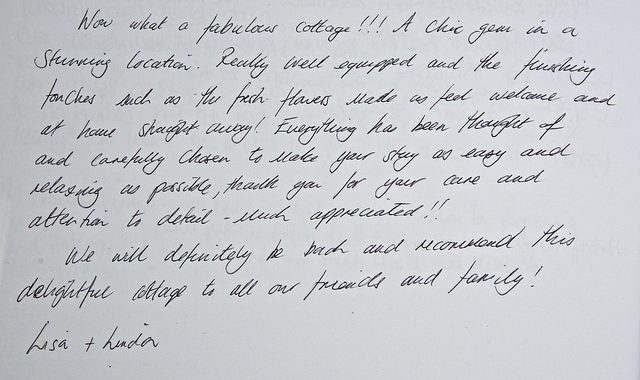 Wow what a fabulous cottage!!! A chic gem in a
stunning location. Really well equipped and the finishing
touches such as the fresh flowers made us feel welcome and
at home straight away! Everything has been thought of
and carefully chosen to make your stay as easy and
relaxing as possible, thank you for your care and
attention to detail - much appreciated!!
We will definitely be back and recommend this
delightful cottage to all our friends and family!
Lisa + Linda